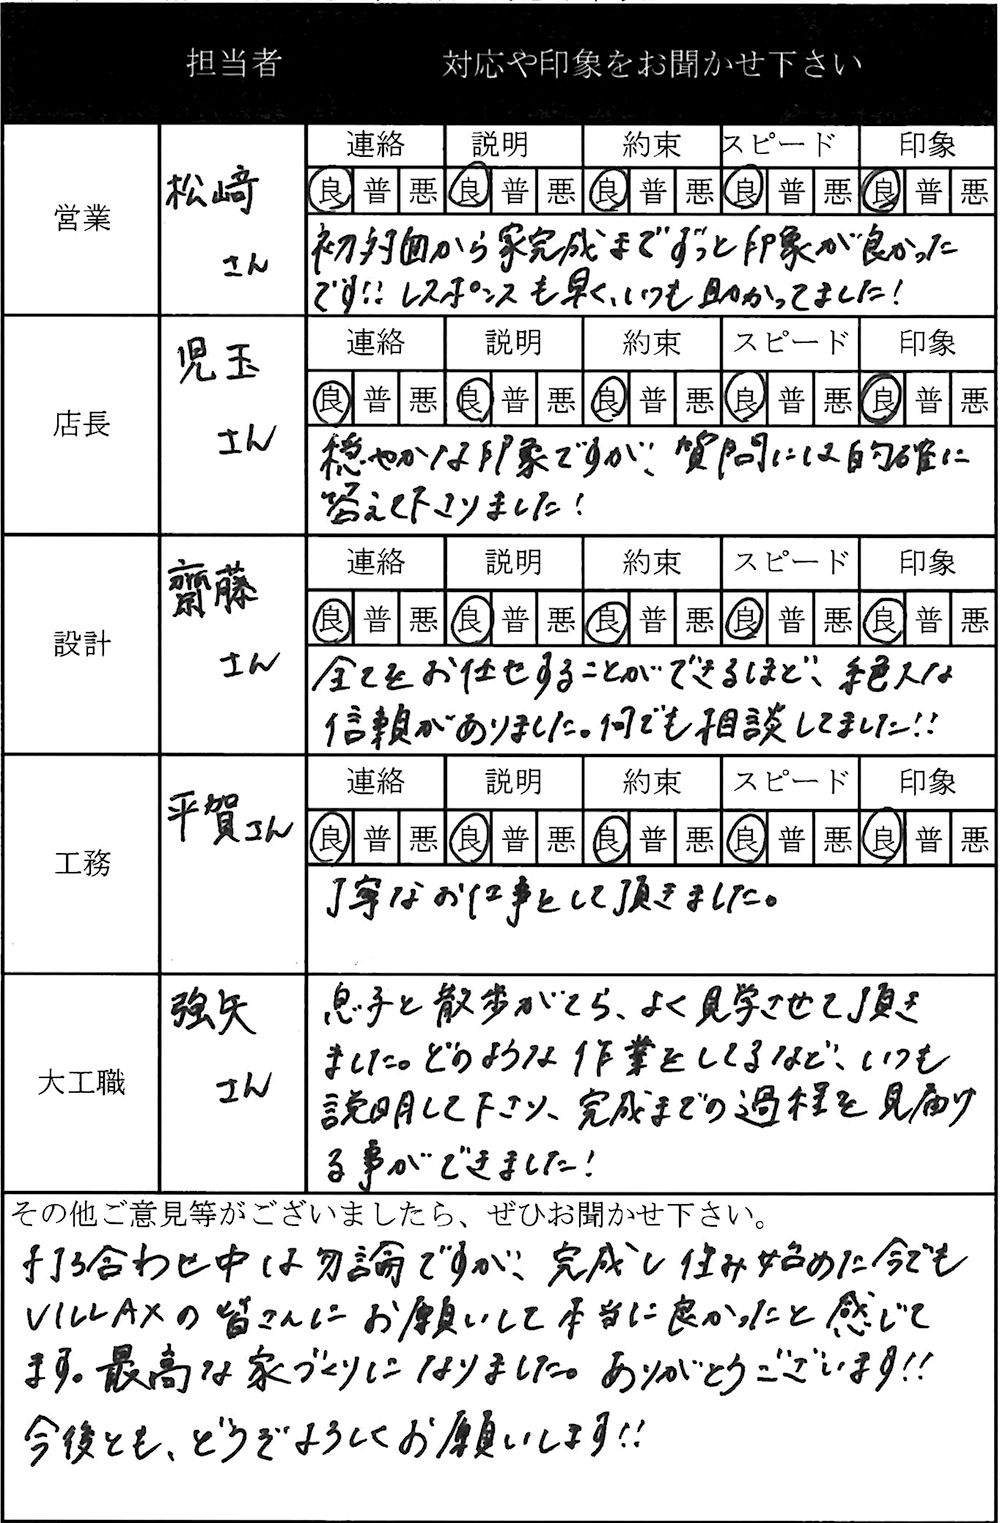 担当者 対応や印象をお聞かせ下さい
連絡 説明 約束 スピード 印象
営業 松﨑
良 普 悪 良 普 悪 良 普 悪 良 普 悪 良 普 悪
さん
初対面から家完成までずっと印象が良かった
です!! レスポンスも早く、いつも助かってました!
連絡 説明 約束 スピード 印象
店長 児玉
良 普 悪 良 普 悪 良 普 悪 良 普 悪 良 普 悪
さん
穏やかな印象ですが、質問には的確に
答えて下さりました!
連絡 説明 約束 スピード 印象
設計 齋藤
良 普 悪 良 普 悪 良 普 悪 良 普 悪 良 普 悪
さん
全てをお任せすることができるほど、絶大な
信頼がありました。何でも相談してました!!
連絡 説明 約束 スピード 印象
工務 平賀さん
良 普 悪 良 普 悪 良 普 悪 良 普 悪 良 普 悪
丁寧なお仕事をして頂きました。
大工職 強矢
さん
息子と散歩がてら、よく見学させて頂き
ました。どのような作業をしてるなど、いつも
説明して下さり、完成までの過程を見届け
る事ができました!
その他ご意見等がございましたら、ぜひお聞かせ下さい。
打ち合わせ中は勿論ですが、完成し住み始めた今でも
VILLAXの皆さんにお願いして本当に良かったと感じて
ます。最高な家づくりになりました。ありがとうございます!!
今後とも、どうぞよろしくお願いします!!